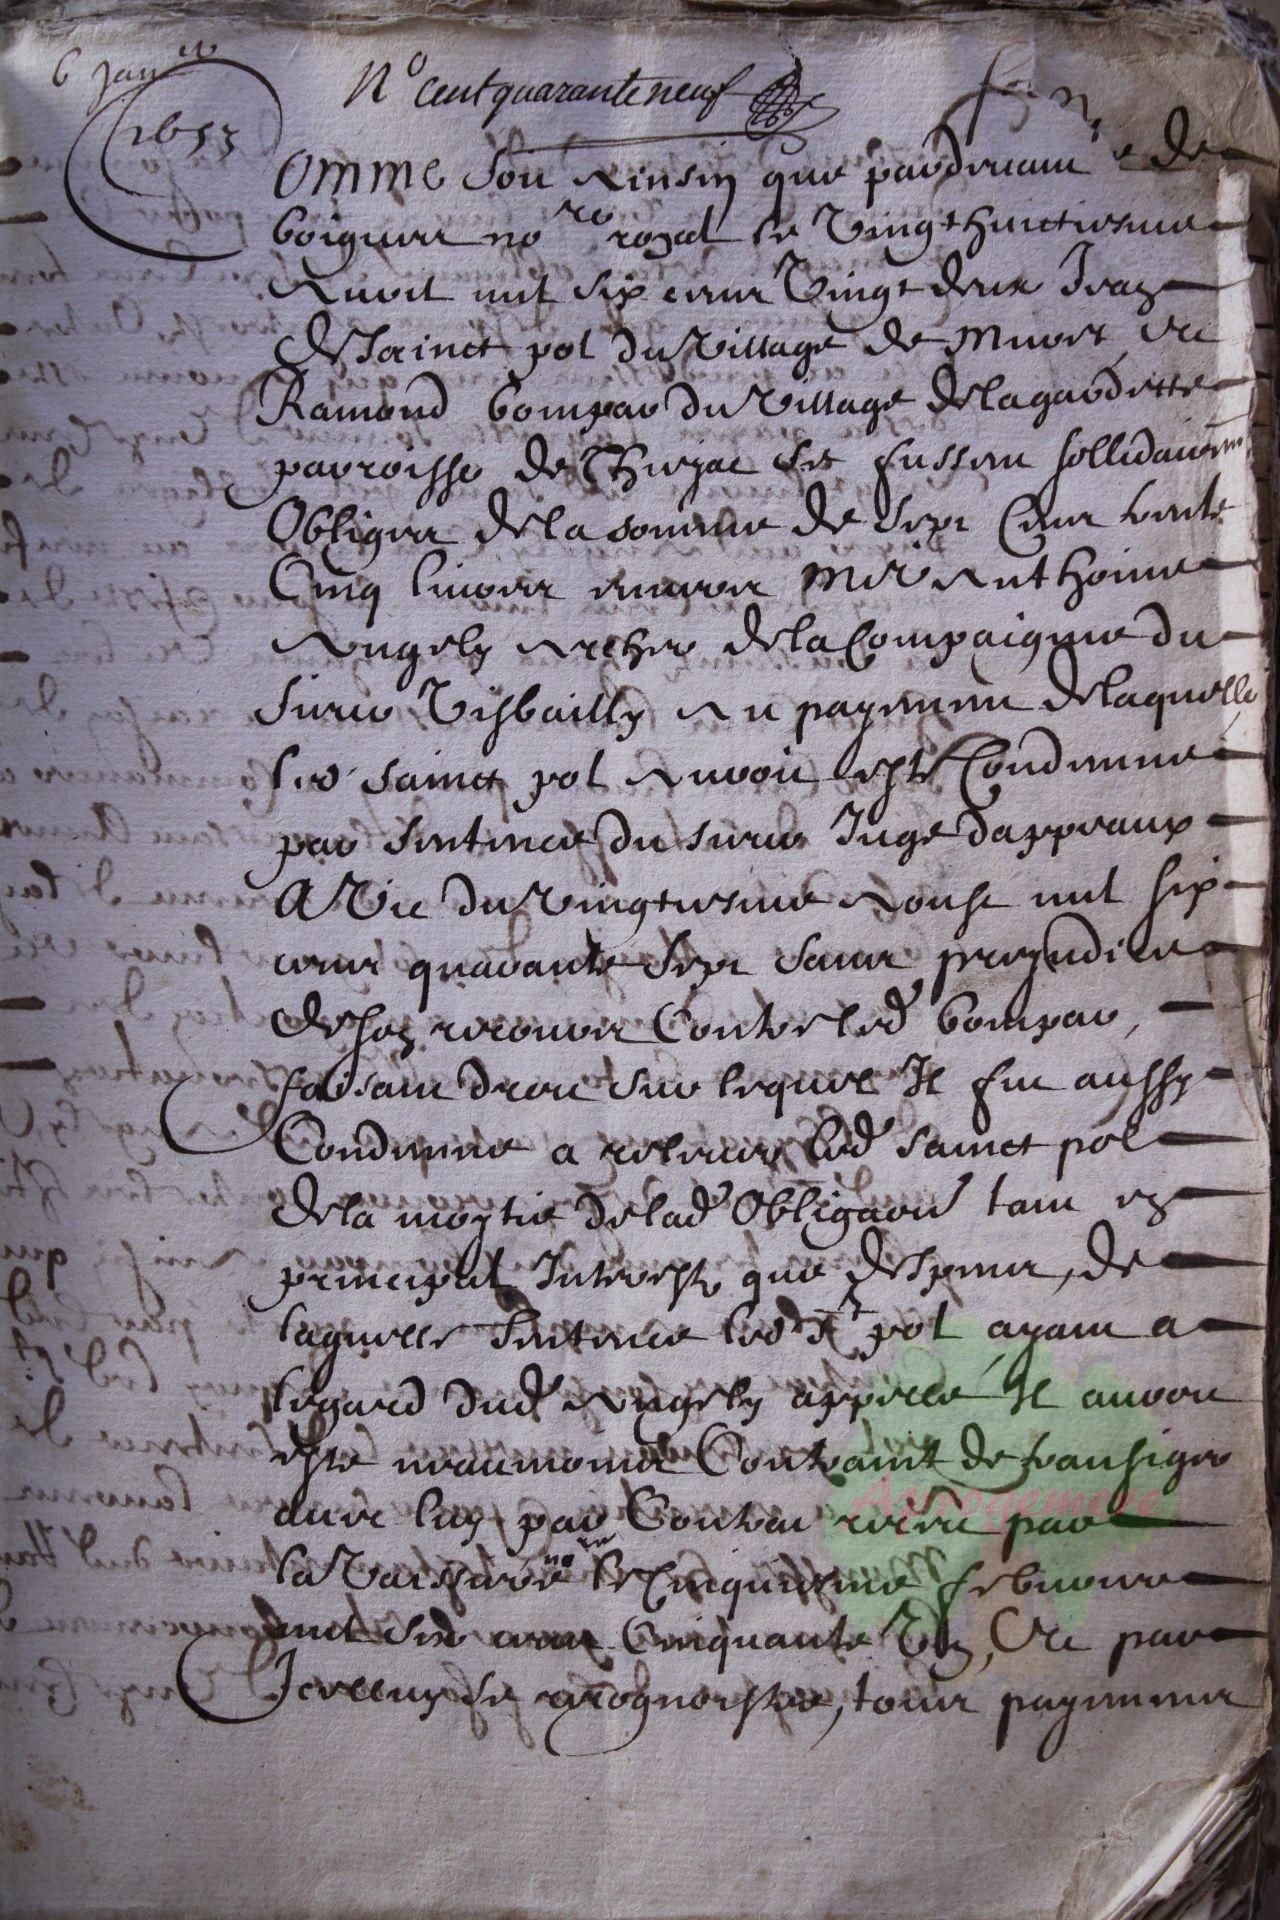 6 janer
1653
No cent quarante neuf
Comme soit ainsin que pardevant de
boigues nore royal le vingt huictiesme
avril mil six cens vingt deux Jean
de sainct pol du village de muret, et
Ramond bompar du village de lagardette
parroisse de Thiezac se fussent sollidairemt
Obliges de la somme de sept cens trente
Cinq livres envers Mre anthoine
angely archer de la Compaignie du
sieur visbailly au payement de laquelle
led sainct pol auroit este Condemne
par sentence du sieur Juge dappeaux
a Vic du vingtiesme aoust mil six
cens quarante sept sauf prejudice
de son recours Contre led bompar,
faisant droit sur lequel Il fut aussy
Condemne a relever led sainct pol
de la moytie de lad Obligaon tant en
principal Interestz que despens, de
laquelle sentence led St pol ayant a
legard dud angely appelle, Il auroit
este neaumoings Contraint de transiger
avec luy par Contrat receu par
la Vaissiere nore le Cinquiesme febvrier
mil six cens Cinquante Un, Et par
Icelluy se recognoistre, tous payemens
Astrogemere